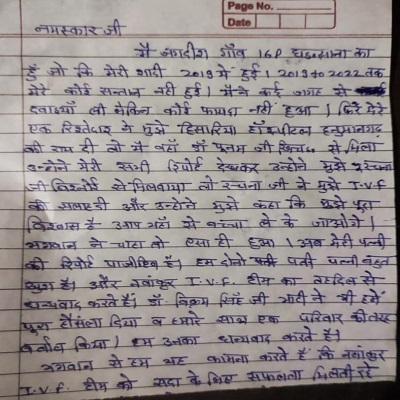 Page No.
Date
नमस्कार जी
मै जगदीश गाँव 16P घड़साना का
हूँ जो कि मेरी शादी 2019 में हुई। 2019 to 2022 तक
मेरे कोई सन्तान नही हुई। मैंने कई जगह से
दवाइयाँ ली लेकिन कोई फायदा नहीं हुआ। फिर मेरे
एक रिश्तेदार ने मुझे हिसारिया हॉस्पीटल हनुमानगढ़
की राय दी तो मैं वहाँ डॉ पुनम जी से मिला
उन्होने मेरी सभी रिपोर्ट देखकर उन्होने मुझे रचना
जी बिश्नोई से मिलवाया तो रचना जी ने मुझे I.V.F
की सलाह दी और उन्होने मुझे कहा कि मुझे पुरा
विश्वास है आप यहाँ से बच्चा ले के जाओगे।
भगवान ने चाहा तो एसा ही हुआ। अब मेरी पत्नी
की रिपोर्ट पाजीटिव है। हम दोनो पती पत्नी बहुत
खुश है। और नवांकुर I.V.F. टीम का तहदिल से
धन्यवाद करते हैं। डॉ विक्रम सिंह जी भाटी ने भी हमें
पुरा हौसंला दिया व हमारे साथ एक परिवार की तरह
बर्ताव किया। हम उनका धन्यवाद करते है।
भगवान से हम यह कामना करते हैं कि नवांकुर
I.V.F. टीम को सदा के लिए सफलता मिलती रहे